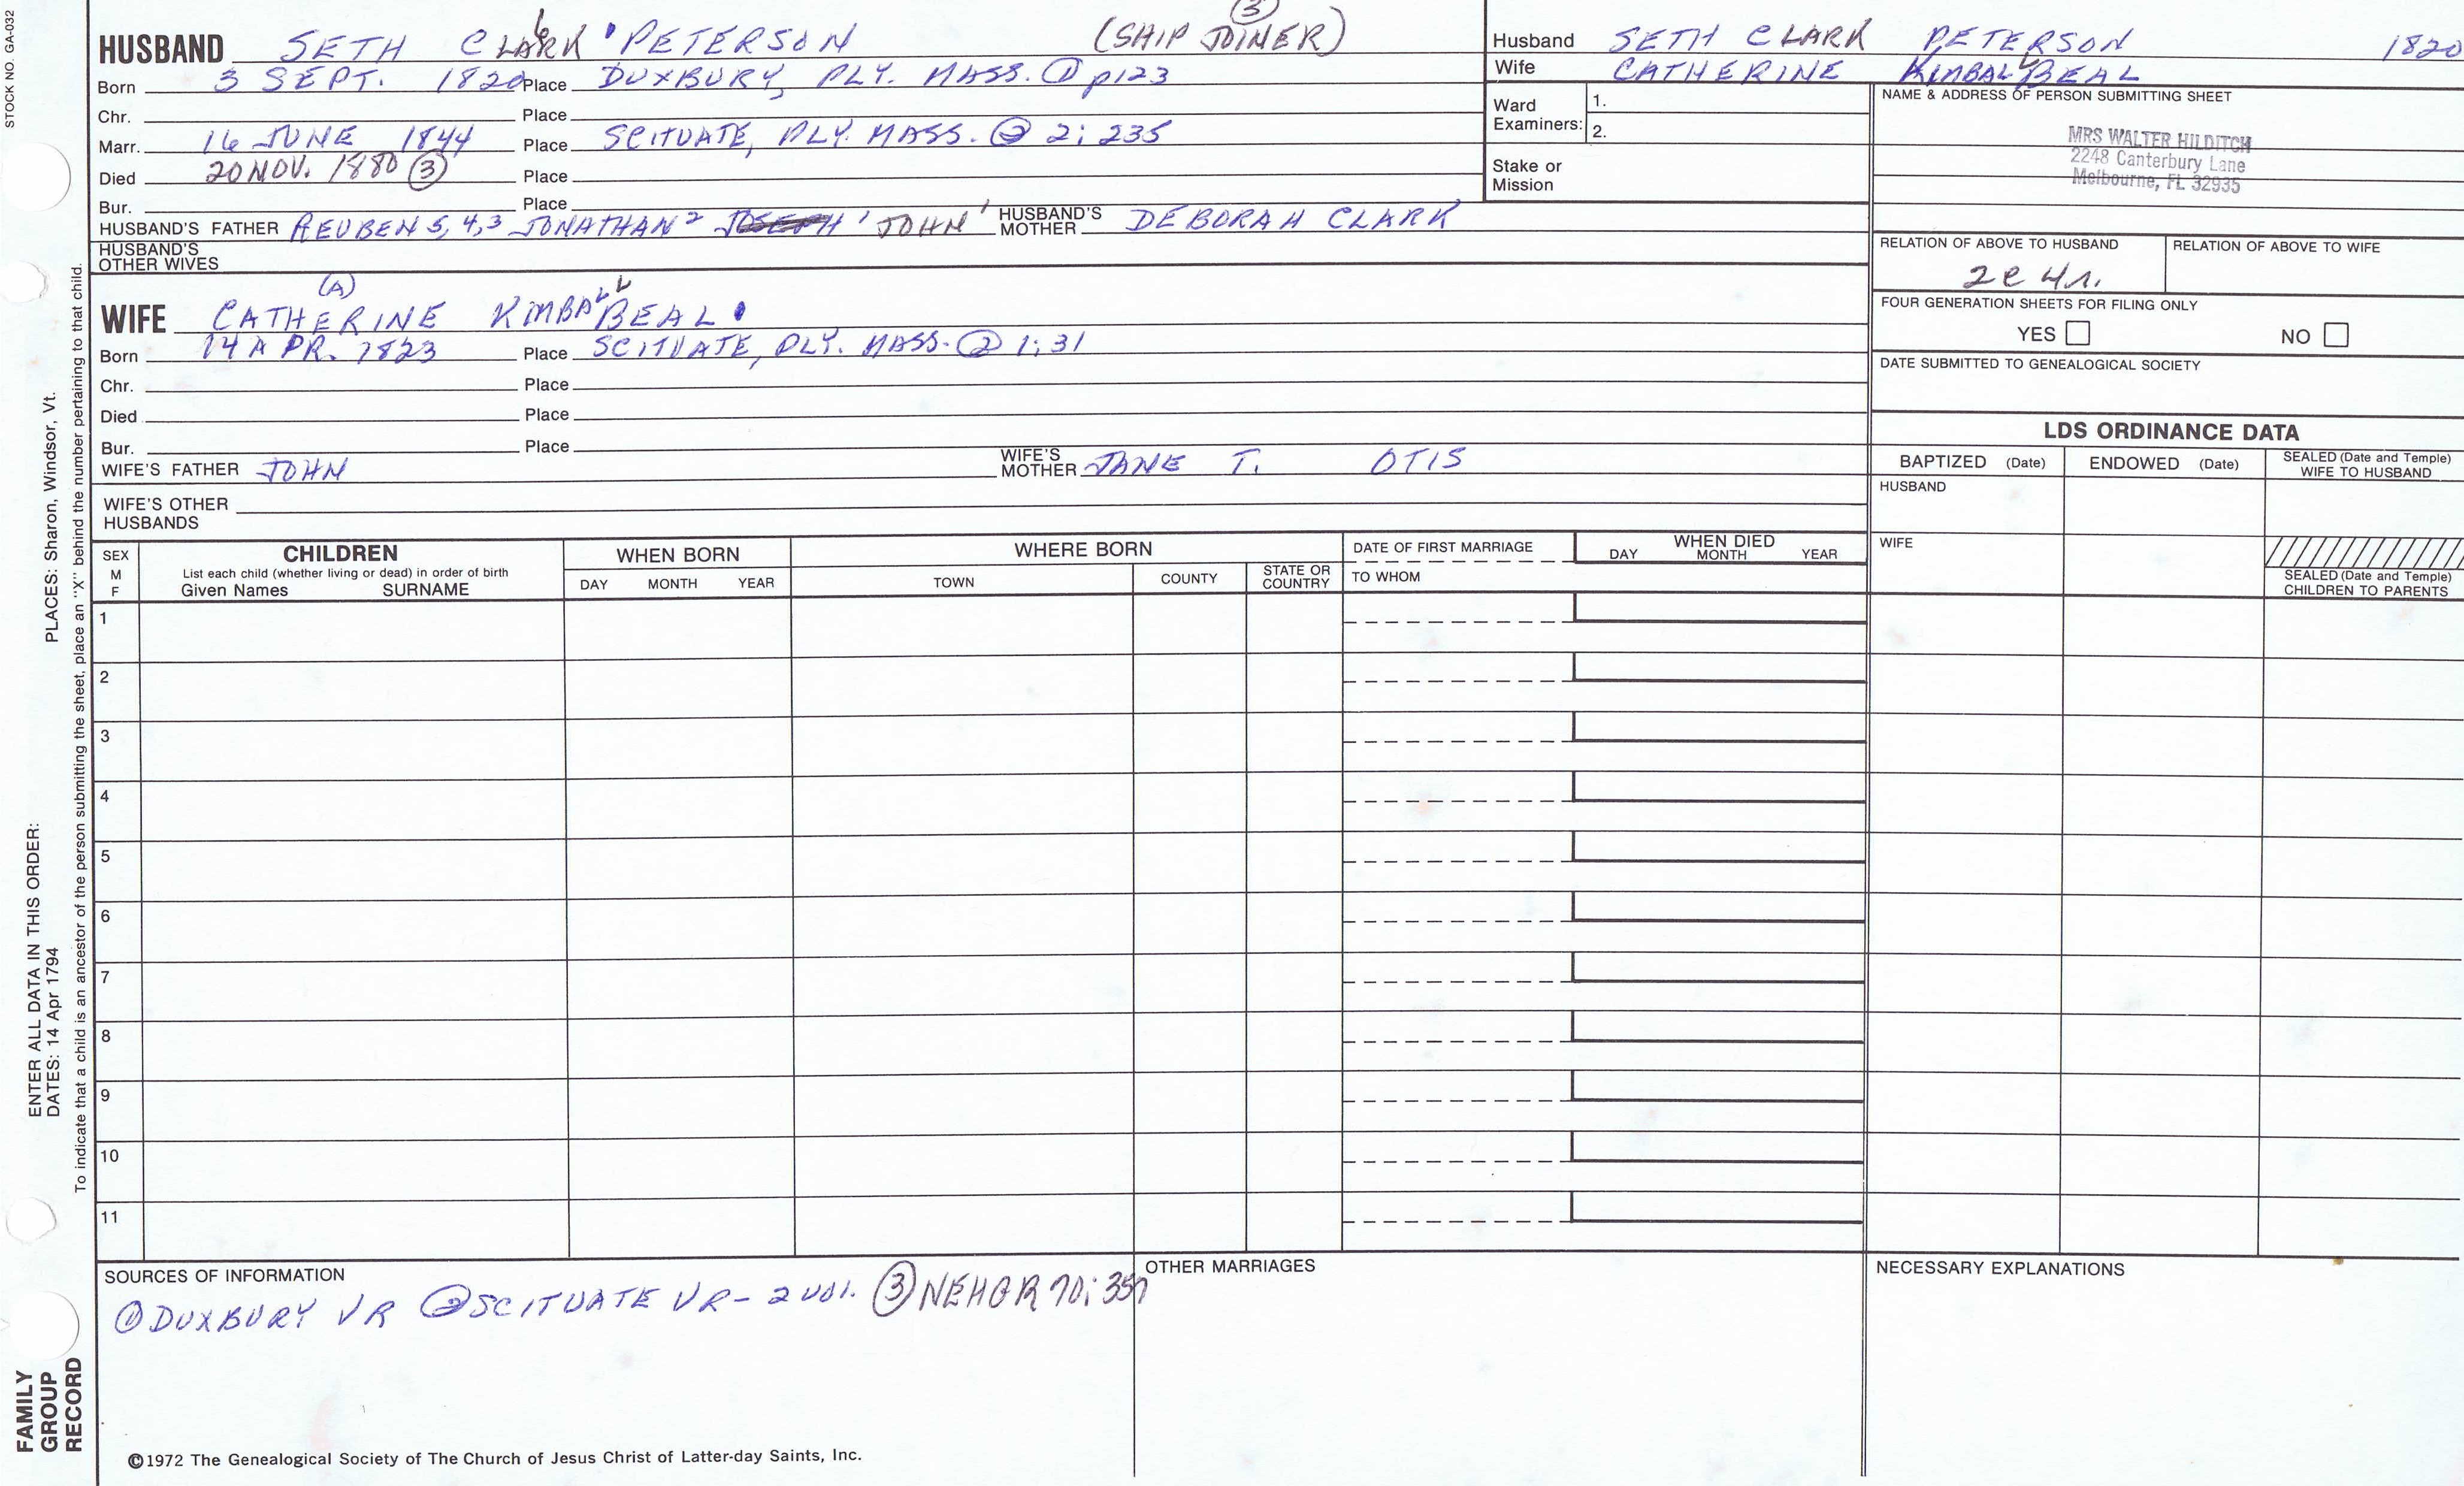 STOCK NO. GA-032
HUSBAND SETH CLARK PETERSON (SHIP JOINER) ③
Born 3 SEPT. 1820 Place DUXBURY, PLY. MASS. ① p123
Chr. Place
Marr. 16 JUNE 1844 Place SCITUATE, PLY. MASS. ② 2; 235
Died 20 NOV. 1880 ③ Place
Bur. Place
HUSBAND'S FATHER REUBEN 5, 4, 3 JONATHAN 2 JOSEPH ' JOHN ' HUSBAND'S MOTHER DEBORAH CLARK
HUSBAND'S OTHER WIVES
(A)
WIFE CATHERINE KIMBALL BEAL
Born 14 APR. 1823 Place SCITUATE, PLY. MASS. ② 1; 31
Chr. Place
Died Place
Bur. Place
WIFE'S FATHER JOHN WIFE'S MOTHER JANE T. OTIS
WIFE'S OTHER HUSBANDS
Husband SETH CLARK PETERSON 1820
Wife CATHERINE KIMBALL BEAL
Ward Examiners: 1.
2.
Stake or Mission
NAME & ADDRESS OF PERSON SUBMITTING SHEET
MRS WALTER HILDITCH
2248 Canterbury Lane
Melbourne, FL 32935
RELATION OF ABOVE TO HUSBAND RELATION OF ABOVE TO WIFE
2c 4r.
FOUR GENERATION SHEETS FOR FILING ONLY
YES NO
DATE SUBMITTED TO GENEALOGICAL SOCIETY
LDS ORDINANCE DATA
BAPTIZED (Date) ENDOWED (Date) SEALED (Date and Temple) WIFE TO HUSBAND
HUSBAND
WIFE
SEALED (Date and Temple) CHILDREN TO PARENTS
SEX M F
CHILDREN
List each child (whether living or dead) in order of birth
Given Names SURNAME
WHEN BORN
DAY MONTH YEAR
WHERE BORN
TOWN COUNTY STATE OR COUNTRY
DATE OF FIRST MARRIAGE
TO WHOM
WHEN DIED
DAY MONTH YEAR
1
2
3
4
5
6
7
8
9
10
11
SOURCES OF INFORMATION
① DUXBURY VR ② SCITUATE VR - 2 vol. ③ NEHGR 70; 357
OTHER MARRIAGES
NECESSARY EXPLANATIONS
©1972 The Genealogical Society of The Church of Jesus Christ of Latter-day Saints, Inc.
ENTER ALL DATA IN THIS ORDER:
DATES: 14 Apr 1794 PLACES: Sharon, Windsor, Vt.
To indicate that a child is an ancestor of the person submitting the sheet, place an "X" behind the number pertaining to that child.
FAMILY
GROUP
RECORD